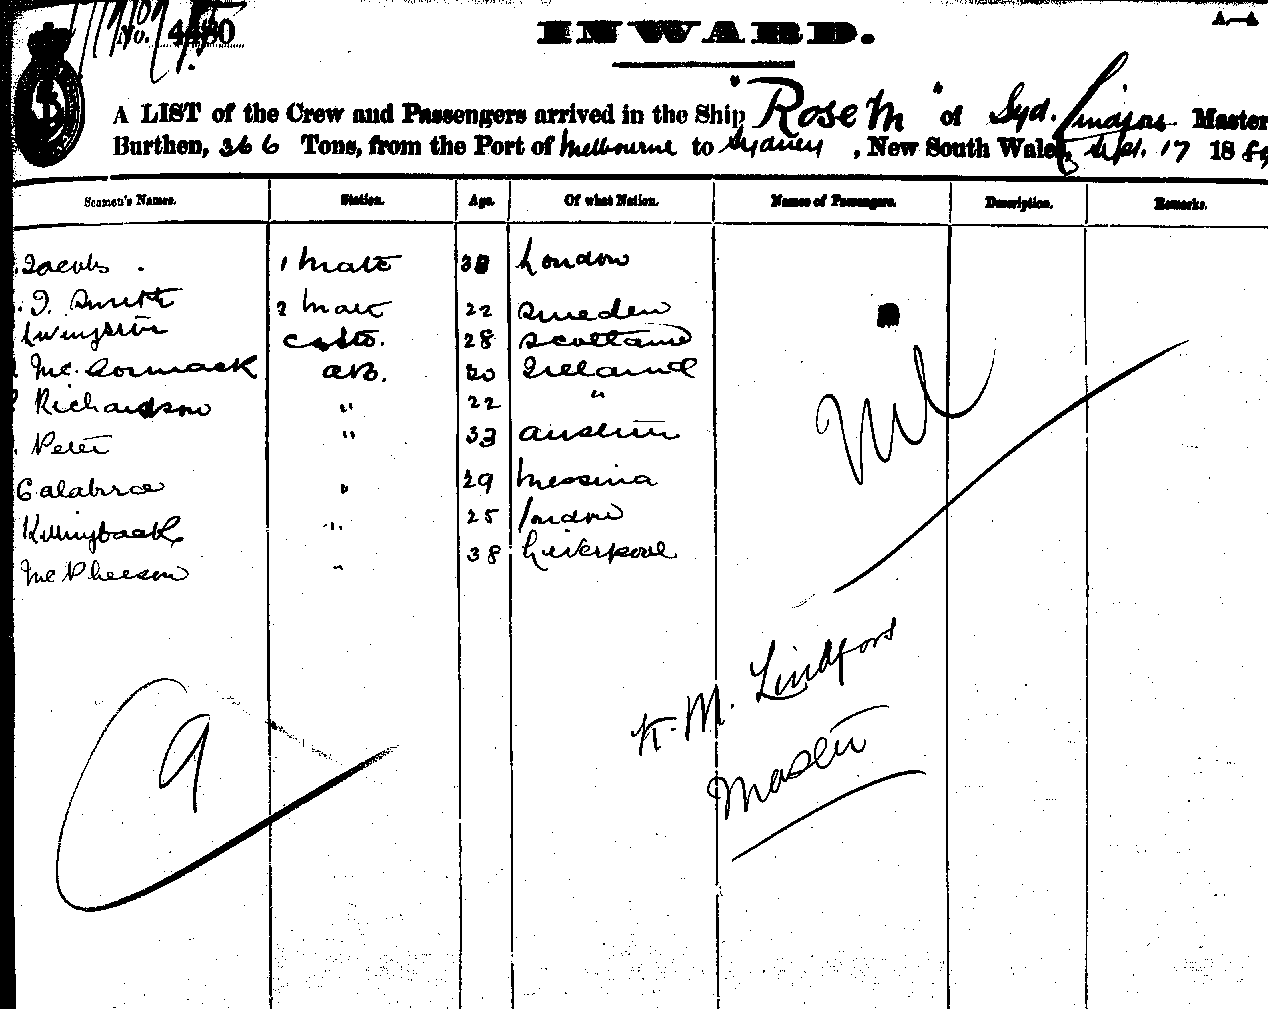 No. 4480
INWARD.
A—A
A LIST of the Crew and Passengers arrived in the Ship "Rose M" of Syd. Lindfors Master
Burthen, 366 Tons, from the Port of Melbourne to Sydney, New South Wales, Sept. 17 188
Seamen's Names. Station. Age. Of what Nation. Names of Passengers. Description. Remarks.
Jacobs . 1 Mate 38 London
J. Smith 2 Mate 22 Sweden
Livingston 28 Scotland
Mc Cormack AB. 20 Ireland
Richardson " 22 "
Peter " 33 Austria
Calabrae " 29 Messina
Killingback " 25 London
McPherson " 38 Liverpool
Nil
K. M. Lindfors
Master
9